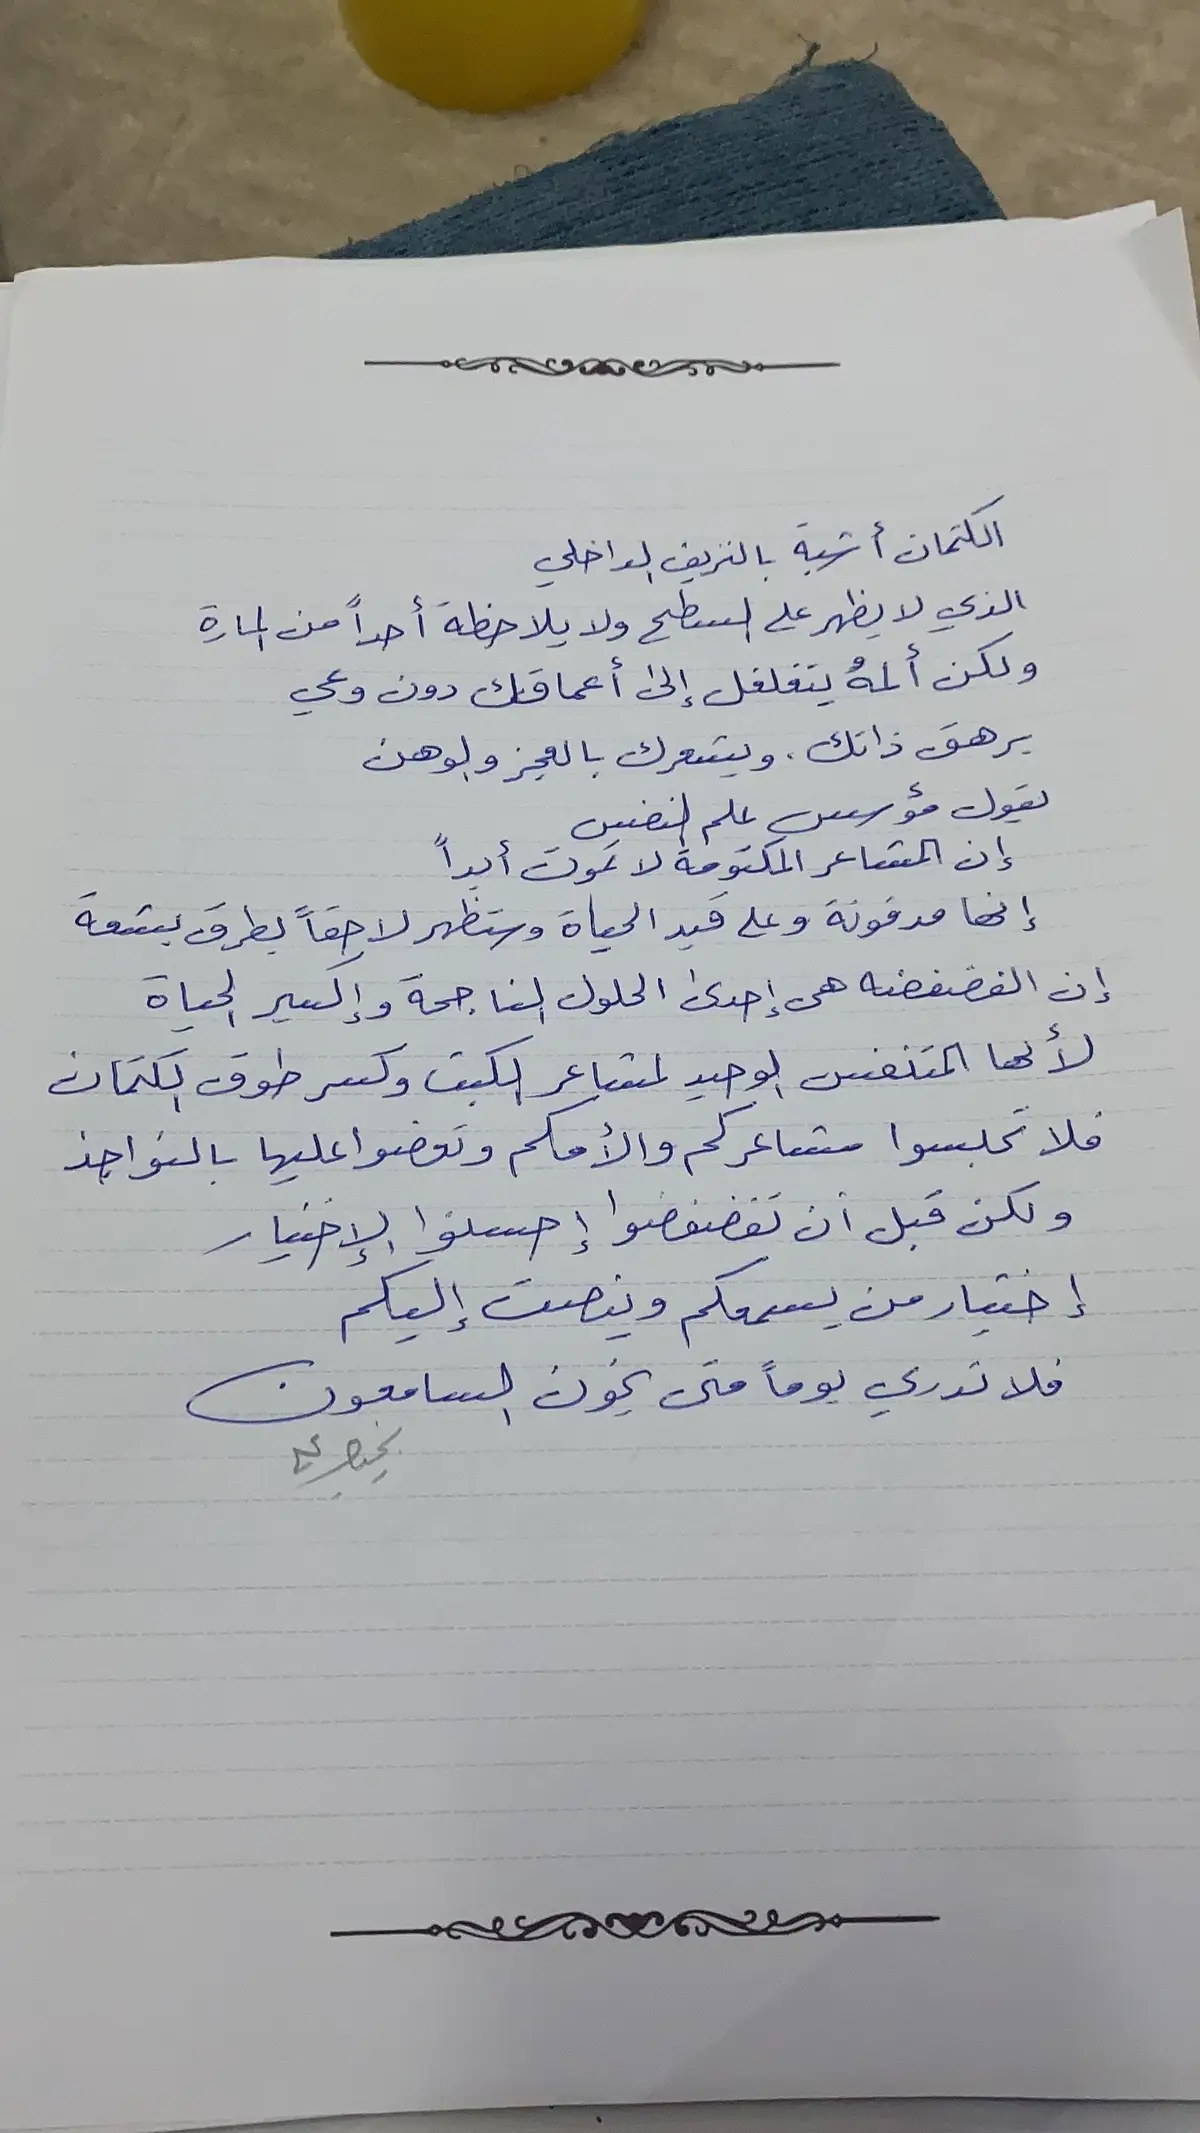 الكتمان أشبة بالنزيف الداخلي
الذي لا يظهر على السطح ولا يلاحظة أحداً من المارة
ولكن ألمهُ يتغلغل إلى أعماقك دون وعي
يرهق ذاتك. ويشعرك بالعجز والوهن
يقول مؤسس علم النفس
إن المشاعر المكتومة لا تموت أبداً
إنها مدفونة وعلى قيد الحياة وستظهر لاحقاً بطرق بشعة
إن الفضفضه هى إحدى الحلول الناجحة وإكسير الحياة
لأنها المتنفس الوحيد لمشاعر الكبت وكسر طوق الكتمان
فلا تحبسوا مشاعركم والأمكم وتعضوا عليها بالنواجذ
ولكن قبل أن تفضفضوا إحسنوا الإختيار
إختيار من يسمعكم وينصت إليكم
فلا تدري يوماً متى يخون السامعون